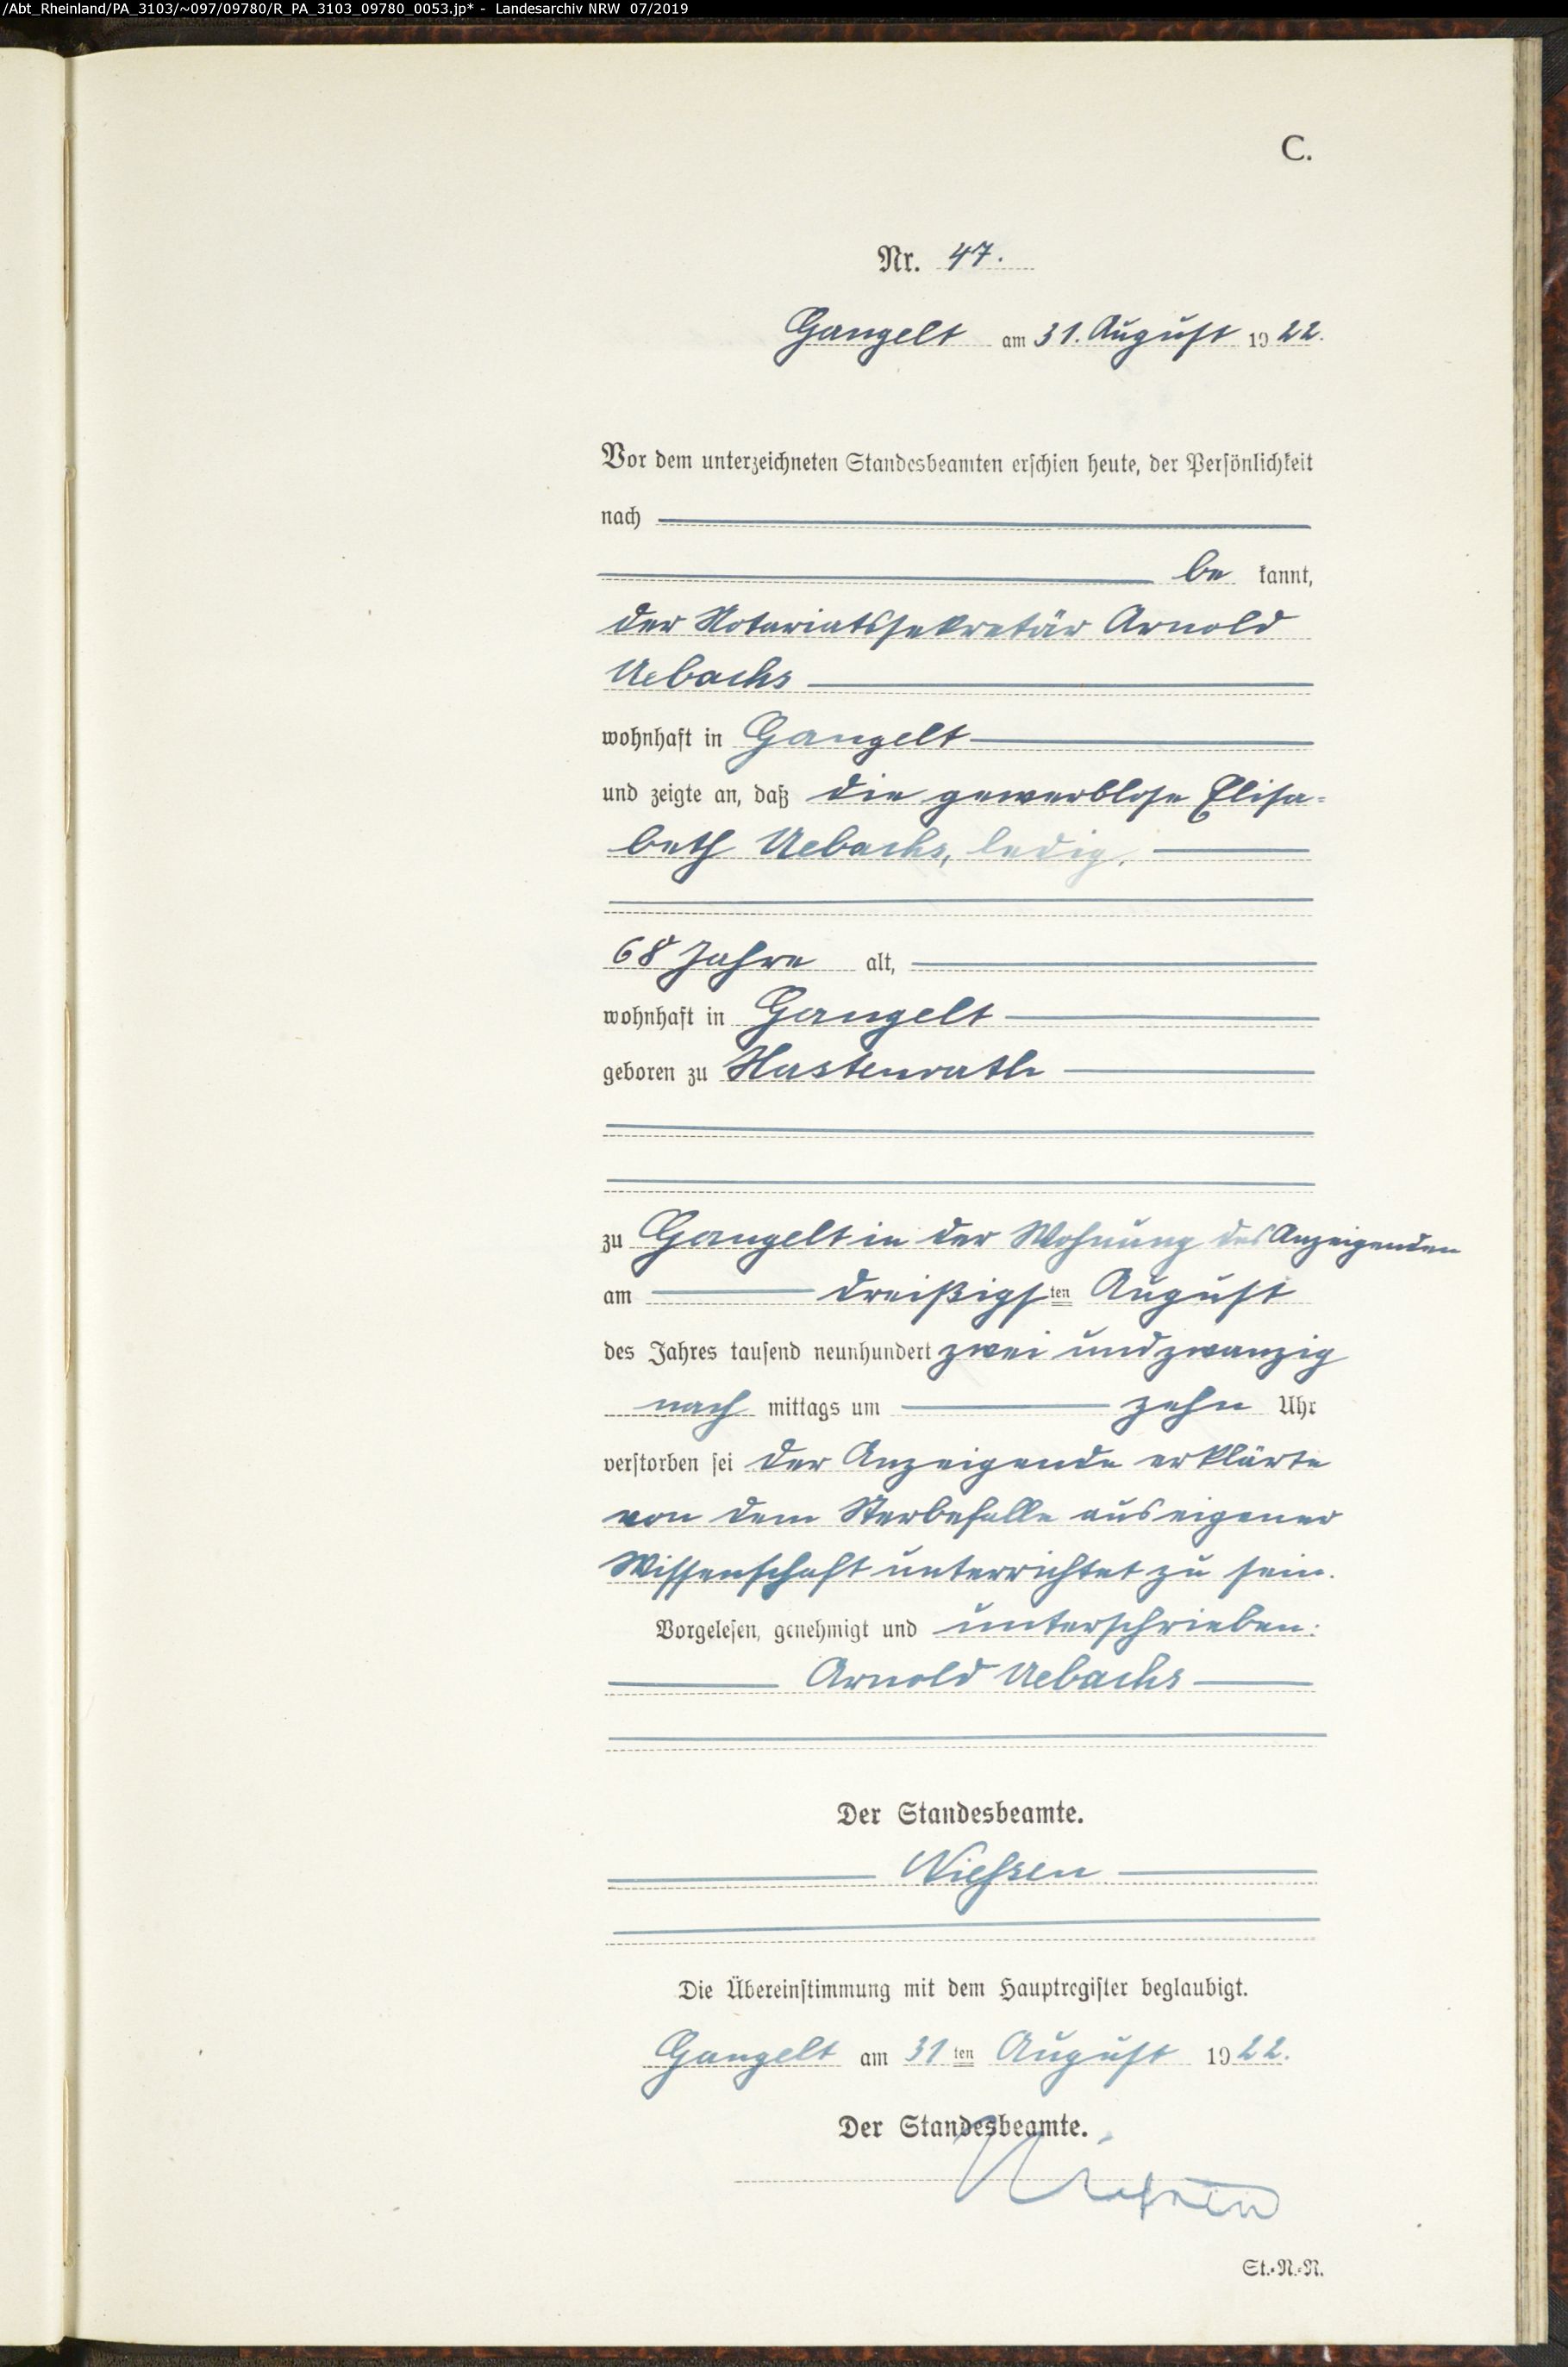 /Abt_Rheinland/PA_3103/~097/09780/R_PA_3103_09780_0053.jp* - Landesarchiv NRW 07/2019
C.
Nr. 47.
Gangelt am 31. August 1922.
Vor dem unterzeichneten Standesbeamten erschien heute, der Persönlichkeit
nach
be kannt,
der Notariatssekretär Arnold
Uebachs
wohnhaft in Gangelt
und zeigte an, daß die gewerblose Elisa-
beth Uebachs, ledig,
68 Jahre alt,
wohnhaft in Gangelt
geboren zu Hastenrath
zu Gangelt in der Wohnung des Anzeigenden
am dreißigsten August
des Jahres tausend neunhundert zwei und zwanzig
nach mittags um zehn Uhr
verstorben sei der Anzeigende erklärte
von dem Sterbefalle aus eigener
Wissenschaft unterrichtet zu sein.
Vorgelesen, genehmigt und unterschrieben:
Arnold Uebachs
Der Standesbeamte.
Nießen
Die Übereinstimmung mit dem Hauptregister beglaubigt.
Gangelt am 31ten August 1922.
Der Standesbeamte.
Nießen
St.-N.-N.